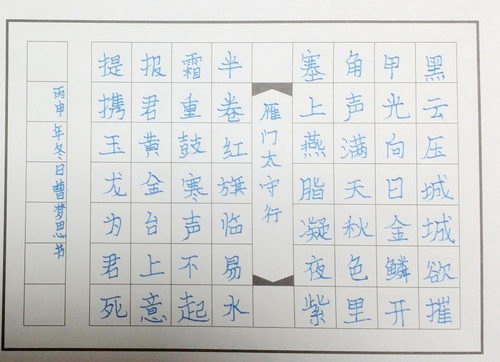 黑云压城城欲摧
甲光向日金鳞开
角声满天秋色里
塞上燕脂凝夜紫
雁门太守行
半卷红旗临易水
霜重鼓寒声不起
报君黄金台上意
提携玉龙为君死
丙申年冬日曹梦思书